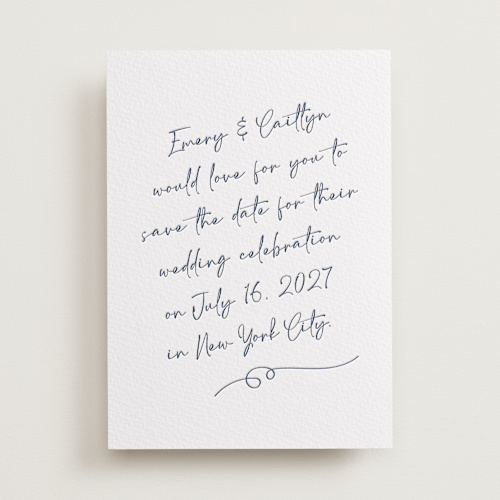 Emery & Caitlyn
would love for you to
save the date for their
wedding celebration
on July 16, 2027
in New York City.